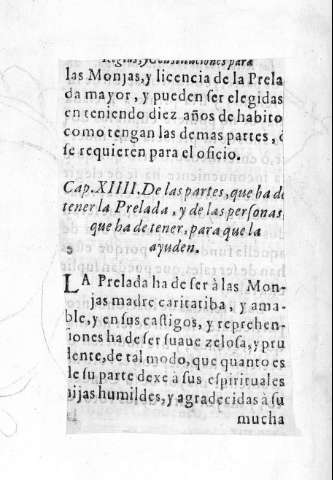 Reglas, y Constituciones para
las Monjas, y licencia de la Prela
da mayor, y pueden ſer elegidas
en teniendo diez años de habito
como tengan las demas partes,
ſe requieren para el oficio.
Cap. XIIII. De las partes, que ha de
tener la Prelada, y de las perſonas,
que ha de tener, para que la
ayuden.
LA Prelada ha de ſer à las Mon-
jas madre caritatiba, y ama-
ble, y en ſus caſtigos, y reprehen-
ſiones ha de ſer ſuaue zeloſa, y pru
dente, de tal modo, que quanto es
de ſu parte dexe a ſus eſpirituales
hijas humildes, y agradecidas à ſu
mucha